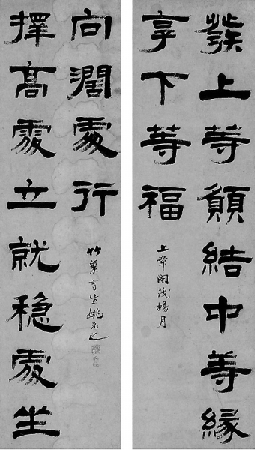 發上等願結中等緣
享下等福
擇高處立就穩處坐
向濶處行